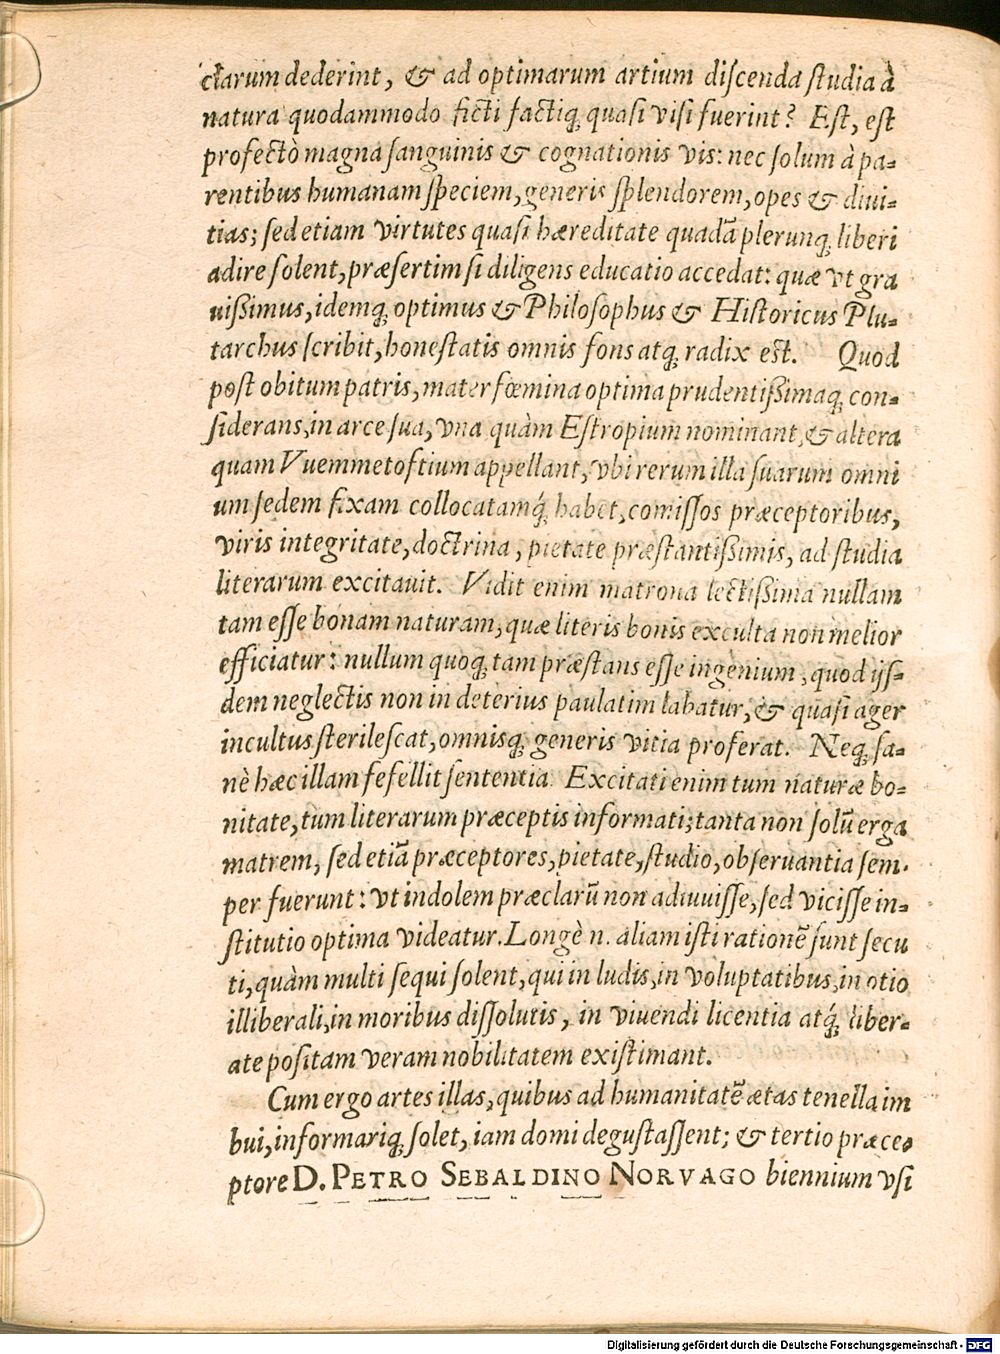 clarum dederint, & ad optimarum artium discenda studia à
natura quodammodo ficti factiq́; quasi visi fuerint? Est, est
profectò magna sanguinis & cognationis vis: nec solum à pa-
rentibus humanam speciem, generis splendorem, opes & diui-
tias; sed etiam virtutes quasi hæreditate quadã plerunq; liberi
adire solent, præsertim si diligens educatio accedat: quæ vt gra
uißimus, idemq; optimus & Philosophus & Historicus Plu-
tarchus scribit, honestatis omnis fons atq; radix est. Quod
post obitum patris, mater fœmina optima prudentißimaq; con-
siderans, in arce sua, vna quàm Estropium nominant, & altera
quam Vuemmetoftium appellant, vbi rerum illa suarum omni
um sedem fixam collocatamq́; habet, comissos præceptoribus,
viris integritate, doctrina, pietate præstantißimis, ad studia
literarum excitauit. Vidit enim matrona lectißima nullam
tam esse bonam naturam, quæ literis bonis exculta non melior
efficiatur: nullum quoq; tam præstans esse ingenium, quod ijs-
dem neglectis non in deterius paulatim labatur, & quasi ager
incultus sterilescat, omnisq; generis vitia proferat. Neq; sa-
nè hæc illam fefellit sententia. Excitati enim tum naturæ bo-
nitate, tum literarum præceptis informati; tanta non solũ erga
matrem, sed etiã præceptores, pietate, studio, obseruantia sem-
per fuerunt: vt indolem præclarũ non adiuuisse, sed vicisse in-
stitutio optima videatur. Longè n. aliam isti rationẽ sunt secu
ti, quàm multi sequi solent, qui in ludis, in voluptatibus, in otio
illiberali, in moribus dissolutis, in viuendi licentia atq́; liber-
ate positam veram nobilitatem existimant.
Cum ergo artes illas, quibus ad humanitatẽ ætas tenella im
bui, informariq; solet, iam domi degustassent; & tertio præce-
ptore D. PETRO SEBALDINO NORVAGO biennium vsi
Digitalisierung gefördert durch die Deutsche Forschungsgemeinschaft - DFG